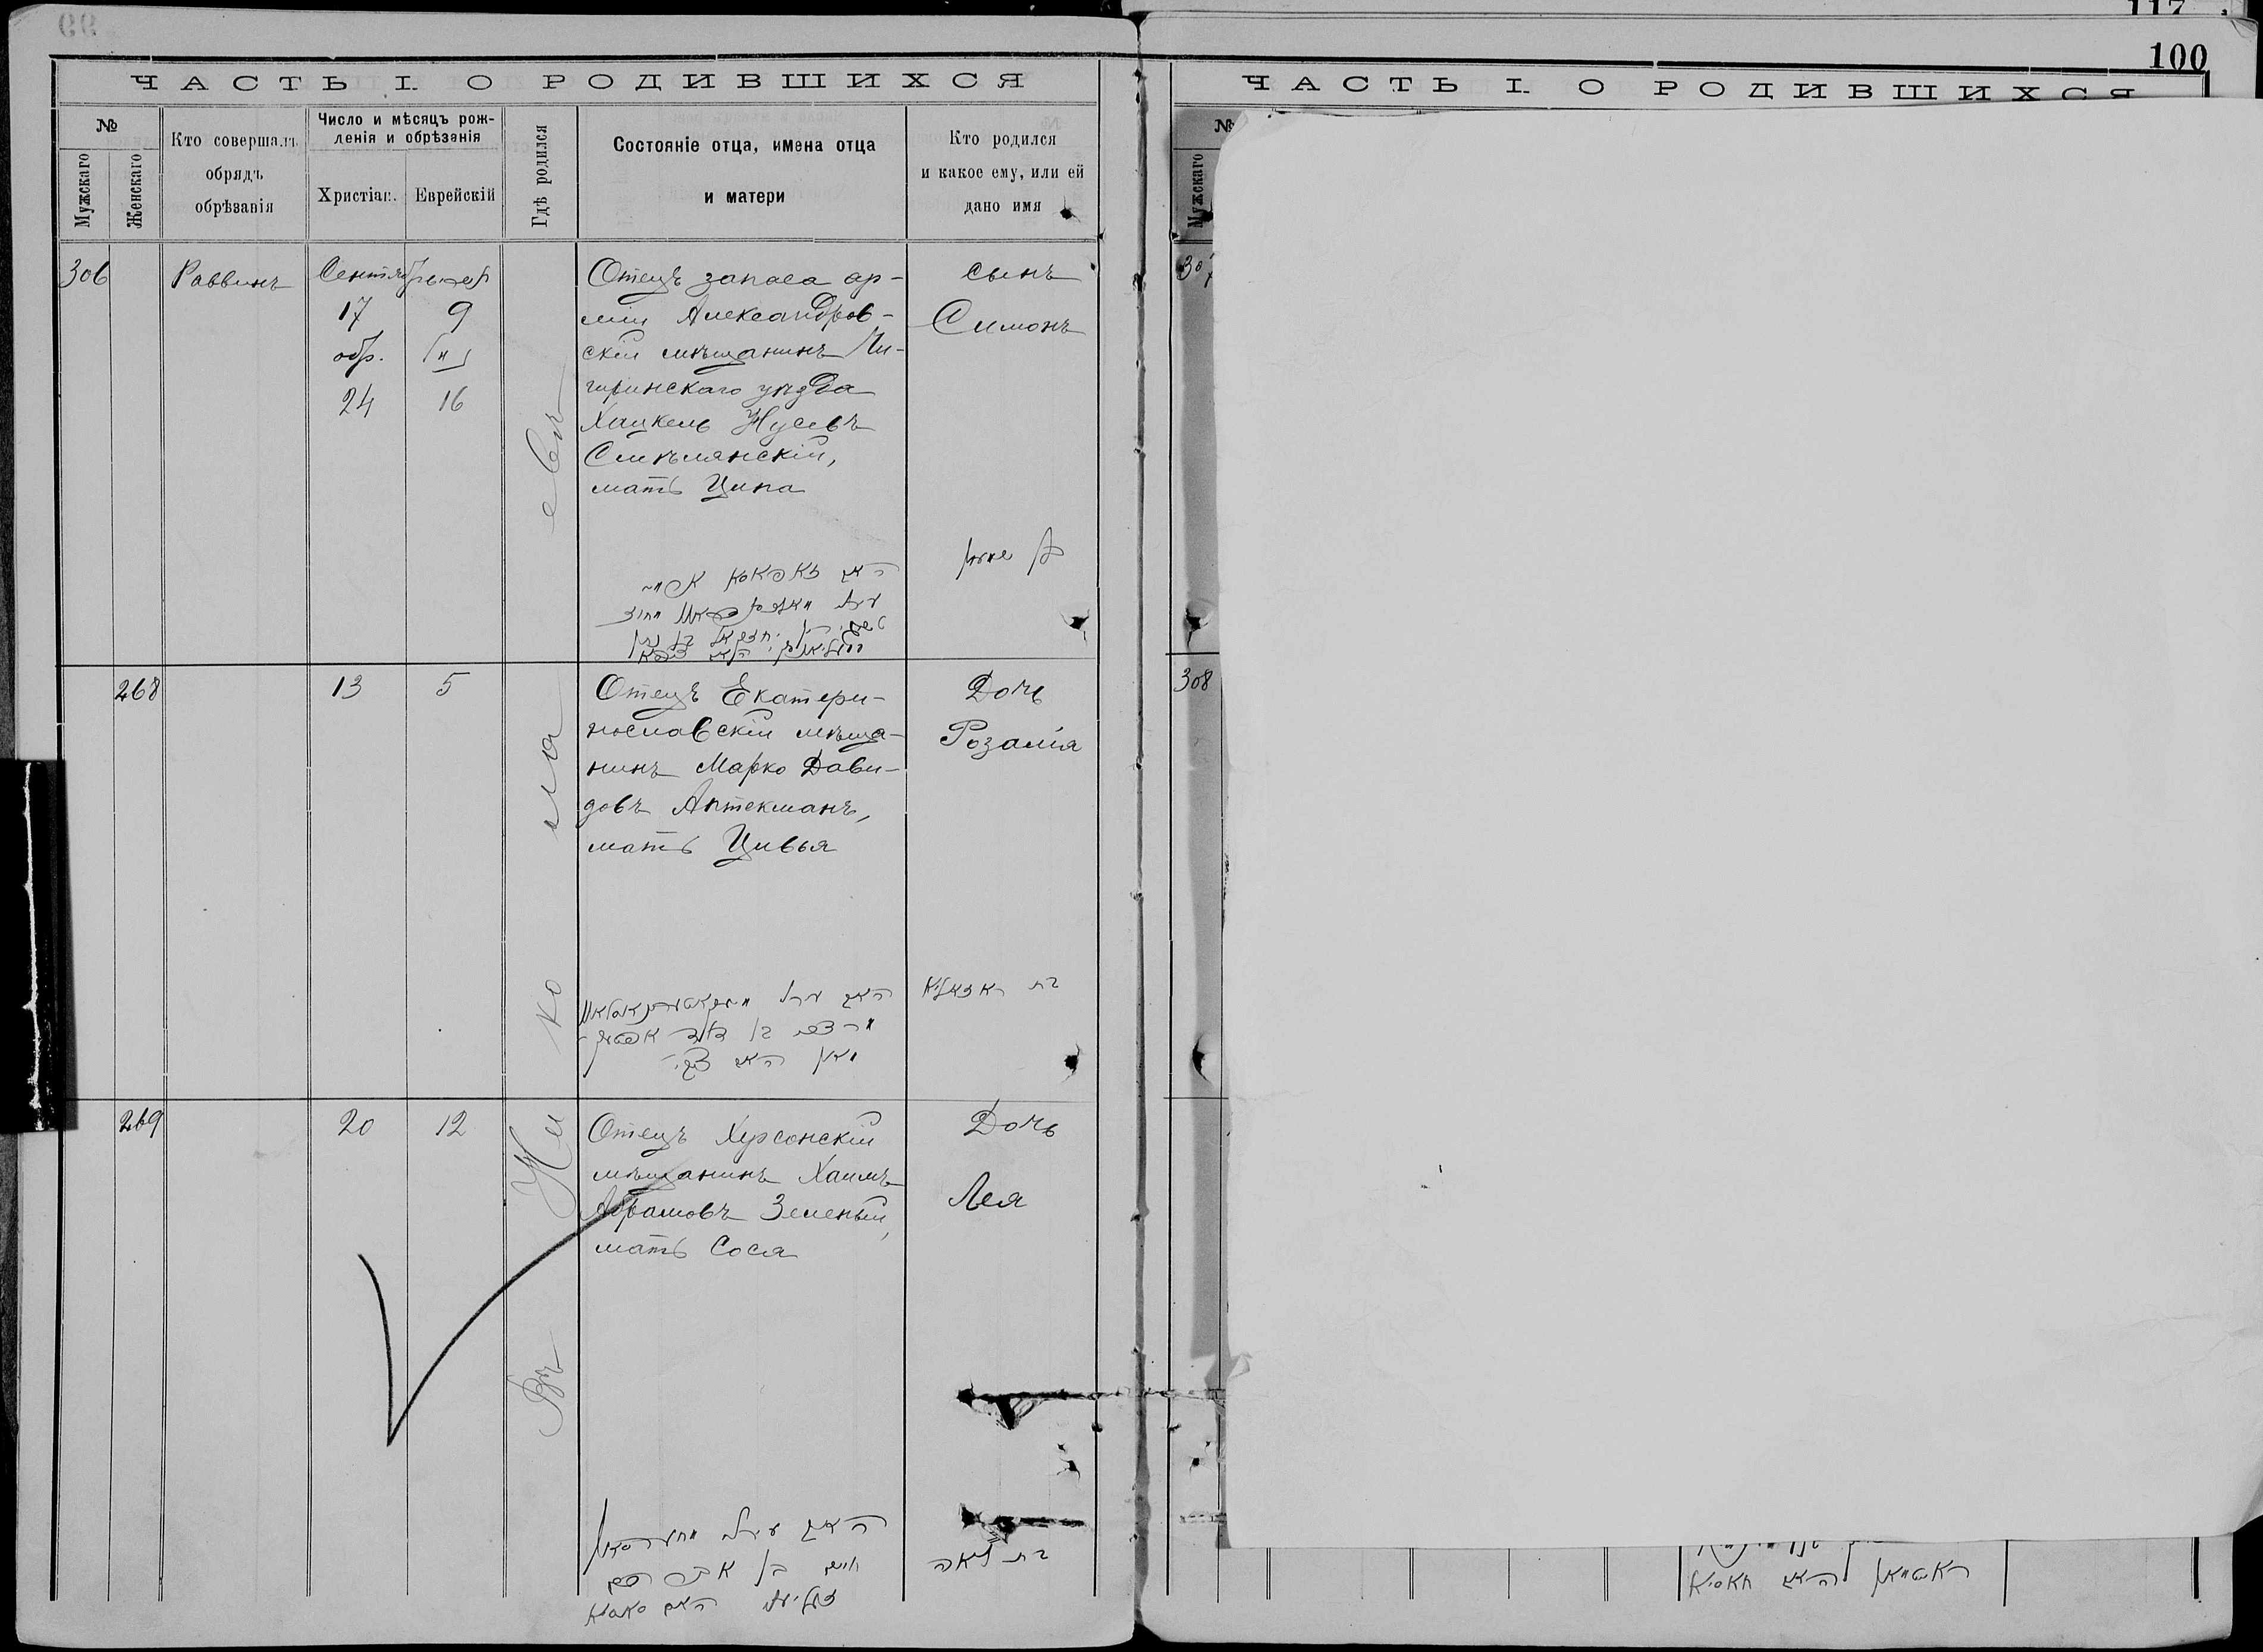 117
100
ЧАСТЬ I. О РОДИВШИХСЯ
№
Мужскаго
Женскаго
Кто совершалъ
обрядъ
обрѣзанія
Число и мѣсяцъ рож-
денія и обрѣзанія
Христіан.
Еврейскій
Гдѣ родился
Состояніе отца, имена отца
и матери
Кто родился
и какое ему, или ей
дано имя
306
Раввинъ
Сентября
17
9
обр.
24
16
Отецъ запаса ар-
міи Александров-
скій мѣщанинъ Чи-
гиринскаго уѣзда
Хацкель Нусевъ
Смѣлянскій,
мать Ципа
сынъ
Симонъ
בן שמעון
268
13
5
Отецъ Екатери-
нославскій мѣща-
нинъ Марко Дави-
довъ Аптекманъ,
мать Цивья
Дочь
Розалія
בת ראזאליא
269
20
12
Отецъ Херсонскій
мѣщанинъ Хаимъ
Абрамовъ Зеленый,
мать Сося
Дочь
Лея
האב עירוני
חיים בן אברהם
האם סאסיא
בת לאה
Въ Николаевѣ
ЧАСТЬ I. О РОДИВШИХСЯ
№
Мужскаго
307
308